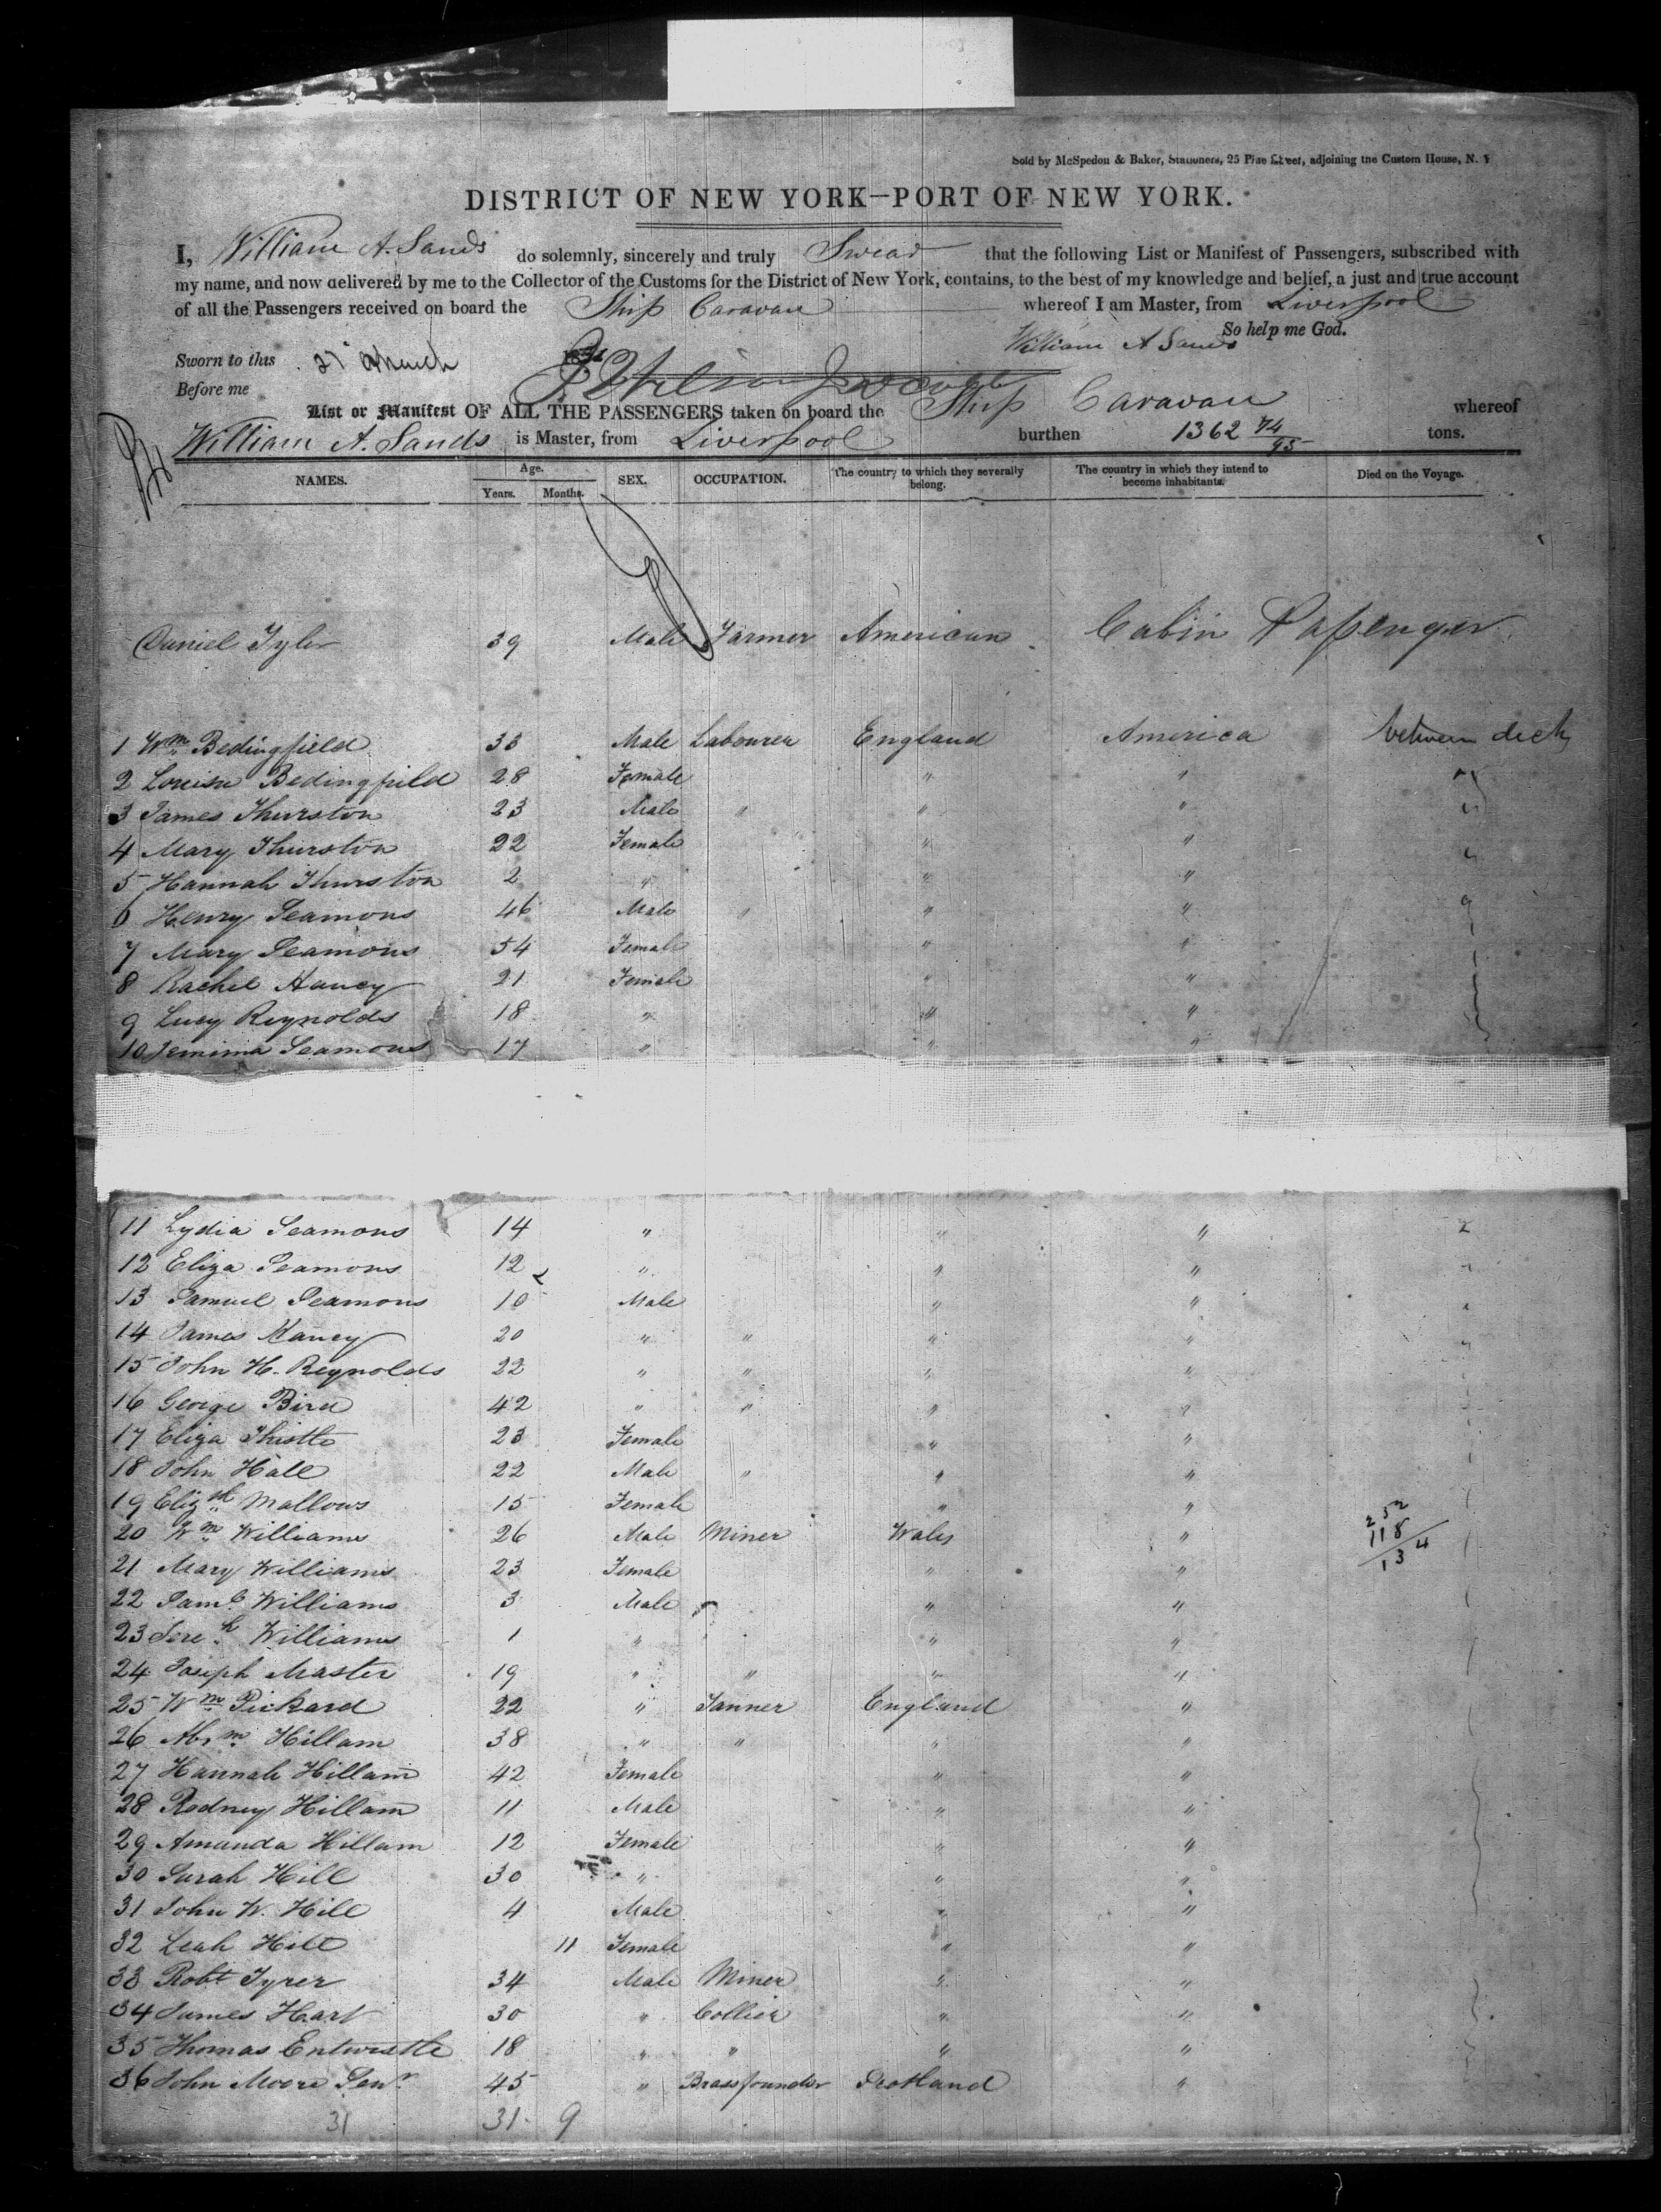 Sold by McSpedon & Baker, Stationers, 25 Pine Street, adjoining the Custom House, N. Y
DISTRICT OF NEW YORK—PORT OF NEW YORK.
I, William A. Sands do solemnly, sincerely and truly Swear that the following List or Manifest of Passengers, subscribed with
my name, and now delivered by me to the Collector of the Customs for the District of New York, contains, to the best of my knowledge and belief, a just and true account
of all the Passengers received on board the Ship Caravan whereof I am Master, from Liverpool
So help me God.
William A Sands
Sworn to this 27 March
Before me
List or Manifest OF ALL THE PASSENGERS taken on board the Ship Caravan whereof
William A. Sands is Master, from Liverpool burthen 1362 74/95 tons.
NAMES. Age. Years. Months. SEX. OCCUPATION. The country to which they severally belong. The country in which they intend to become inhabitants. Died on the Voyage.
Daniel Tyler 39 Male Farmer American Cabin Passenger
1 Wm Bedingfield 33 Male Labourer England America between deck
2 Louisa Bedingfield 28 Female " "
3 James Thurston 23 Male " " "
4 Mary Thurston 22 Female " "
5 Hannah Thurston 2 " " "
6 Henry Seamons 46 Male " " "
7 Mary Seamons 54 Female " "
8 Rachel Hancy 21 Female " "
9 Lucy Reynolds 18 " " "
10 Jemima Seamons 17 " " "
11 Lydia Seamons 14 " " "
12 Eliza Seamons 12 " " "
13 Samuel Seamons 10 Male " "
14 James Hancy 20 " " " "
15 John H. Reynolds 22 " " " "
16 George Bird 42 " " " "
17 Eliza Thistle 23 Female " "
18 John Hall 22 Male " " "
19 Elizth Mallows 15 Female " "
20 Wm Williams 26 Male Miner Wales " 252
118
134
21 Mary Williams 23 Female " "
22 Saml Williams 3 Male " "
23 Jereh Williams 1 " " "
24 Joseph Master 19 " " " "
25 Wm Pickard 22 " Tanner England "
26 Abrm Hillam 38 " " " "
27 Hannah Hillam 42 Female " "
28 Rodney Hillam 11 Male " "
29 Amanda Hillam 12 Female " "
30 Sarah Hill 30 " " "
31 John W. Hill 4 Male " "
32 Leah Hill 11 Female " "
33 Robt Tyrer 34 Male Miner " "
34 James Hart 30 " Collier " "
35 Thomas Entwistle 18 " " " "
36 John Moore Senr 45 " Brassfounder Scotland "
31 31 9